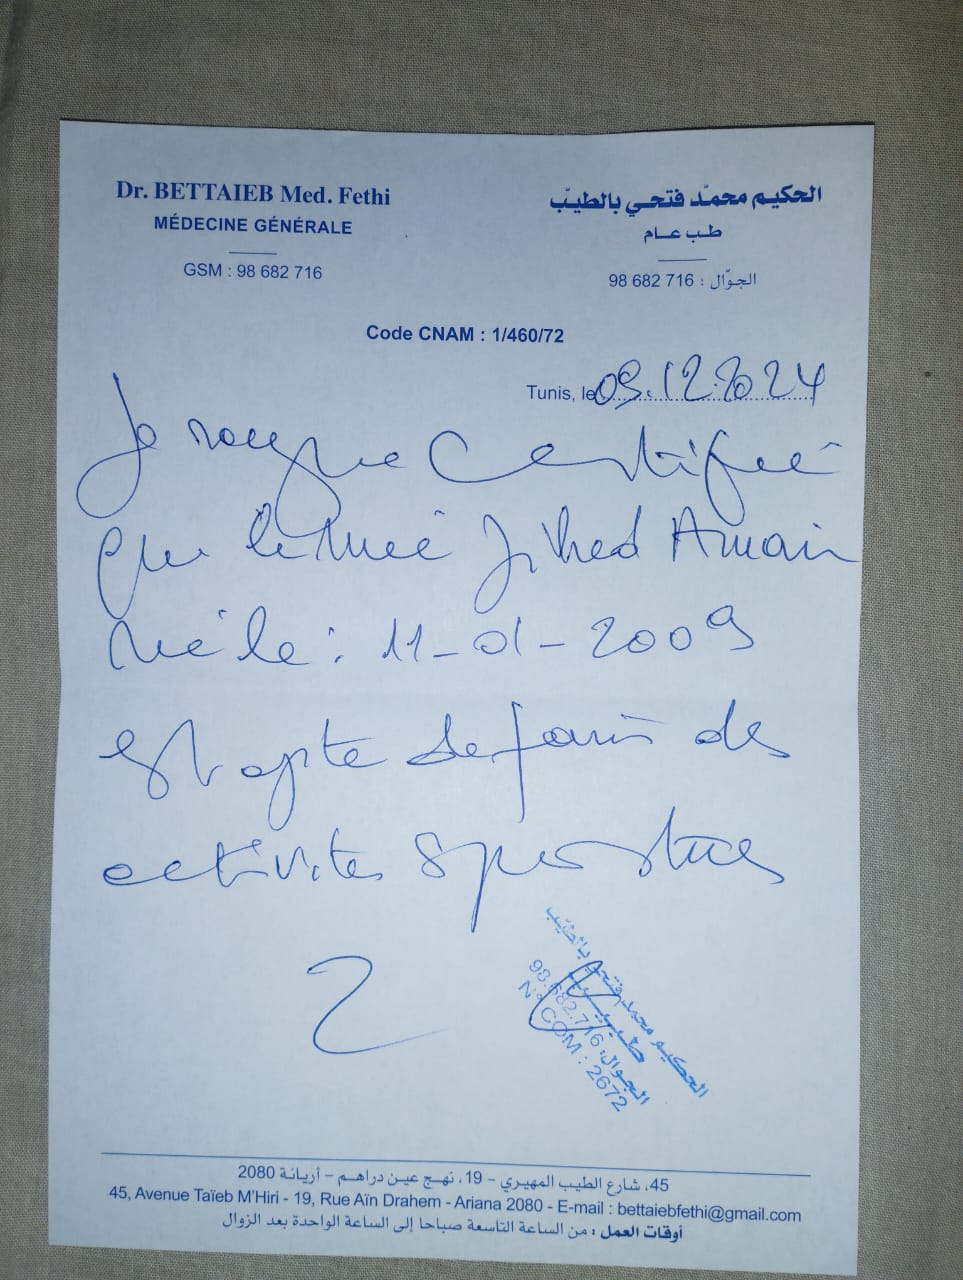 Dr. BETTAIEB Med. Fethi
MÉDECINE GÉNÉRALE
GSM : 98 682 716
الحكيم محمّد فتحي بالطيّب
طب عام
الجوّال : 98 682 716
Code CNAM : 1/460/72
Tunis, le 09.12.2024
Je certifie
que Jihed
Né le : 11-01-2009
est apte de faire des
activités sportives
الحكيم محمد فتحي بالطيّب
طبيب
الجوال: 98.682.716
N° COM : 2672
45، شارع الطيب المهيري - 19، نهج عين دراهم - أريانة 2080
45, Avenue Taïeb M'Hiri - 19, Rue Aïn Drahem - Ariana 2080 - E-mail : bettaiebfethi@gmail.com
أوقات العمل : من الساعة التاسعة صباحا إلى الساعة الواحدة بعد الزوال